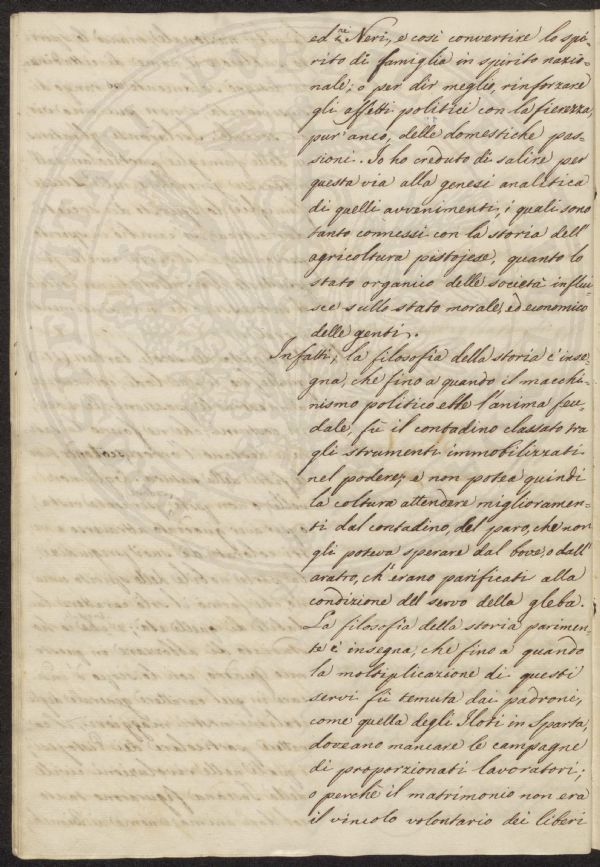 ed ne' Neri, e così convertire lo spi-
rito di famiglia in spirito nazio-
nale; o per dir meglio, rinforzare
gli affetti politici con la fierezza,
pur' anco, delle domestiche pas-
sioni. Io ho creduto di salire per
questa via alla genesi analitica
di quelli avvenimenti, i quali sono
tanto connessi con la storia dell'
agricoltura pistojese, quanto lo
stato organico delle società influi-
sce sullo stato morale, ed economico
delle genti.
Infatti, la filosofia della storia c'inse-
gna, che fino a quando il macchi-
nismo politico ebbe l'anima feu-
dale, fù il contadino classato tra
gli strumenti immobilizzati
nel podere; e non potea quindi
la coltura attendere miglioramen-
ti dal contadino, del paro, che non
gli poteva sperare dal bove, o dall'
aratro, ch'erano parificati alla
condizione del servo della gleba.
La filosofia della storia parimen-
te c'insegna, che fino a quando
la moltiplicazione di questi
servi fù temuta dai padroni,
come quella degli Iloti in Sparta,
doveano mancare le campagne
di proporzionati lavoratori;
o perchè il matrimonio non era
il vincolo volontario dei liberi